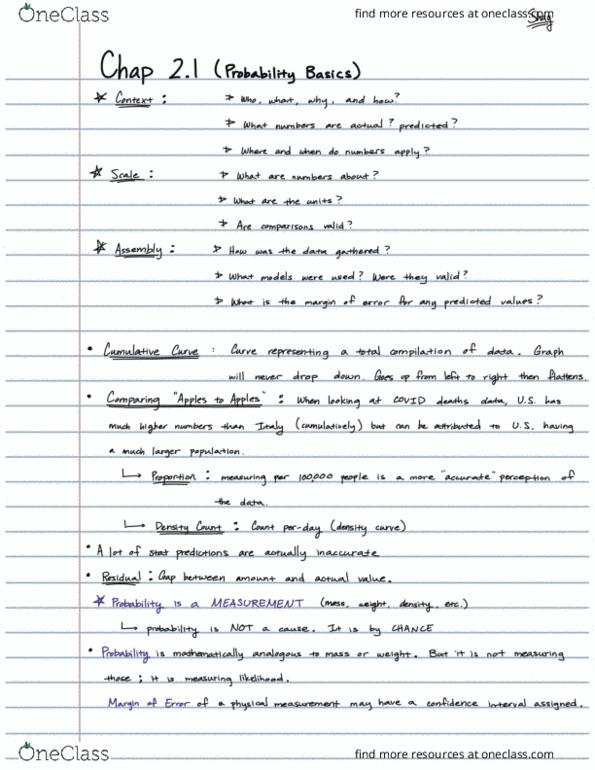 OneClass
find more resources at oneclass.com
Chap 2.1 (Probability Basics)
Context : Who, what, why, and how?
What numbers are actual? predicted?
Where and when do numbers apply?
Scale : What are numbers about?
What are the units?
Are comparisons valid?
Assembly : How was the data gathered?
What models were used? Were they valid?
What is the margin of error for any predicted values?
• Cumulative Curve : Curve representing a total compilation of data. Graph
will never drop down. Goes up from left to right then flattens.
• Comparing "Apples to Apples" : When looking at COVID deaths data, U.S. has
much higher numbers than Italy (cumulatively) but can be attributed to U.S. having
a much larger population.
Proportion : measuring per 100,000 people is a more "accurate" perception of
the data.
Density Count : Count per-day (density curve)
• A lot of stat predictions are actually inaccurate
• Residual : Gap between amount and actual value.
Probability is a MEASUREMENT (mass, weight, density, etc.)
probability is NOT a cause. It is by CHANCE
• Probability is mathematically analogous to mass or weight. But it is not measuring
those ; it is measuring likelihood.
Margin of Error of a physical measurement may have a confidence interval assigned.
OneClass
find more resources at oneclass.com